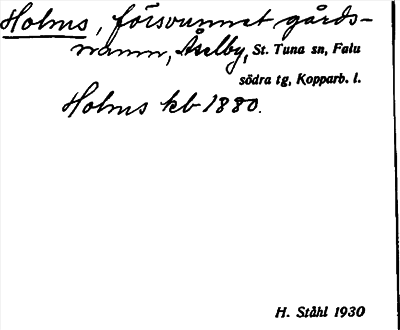 Holms, försvunnet gårds-
namn, Åselby, St. Tuna sn, Falu
södra tg, Kopparb. l.
Holms kb 1880.
H. Ståhl 1930